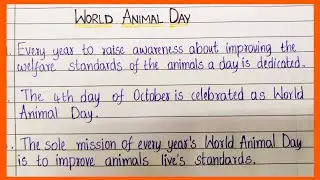 World Animal Day
. Every year to raise awareness about improving the
welfare standards of the animals a day is dedicated.
. The 4th day of October is celebrated as World
Animal Day.
. The sole mission of every year's World Animal Day
is to improve animals live's standards.